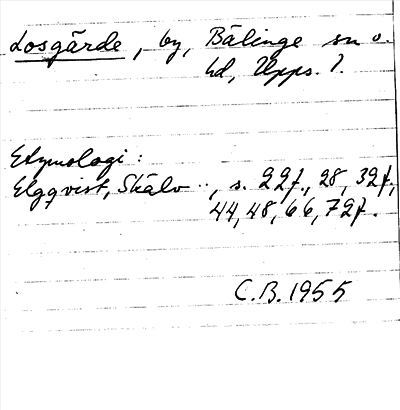 Losgärde, by, Bälinge sn o.
hd, Upps. l.
Etymologi:
Elgqvist, Skälv.., s. 22f., 28, 32f,
44, 48, 66, 72f.
C.B. 1955